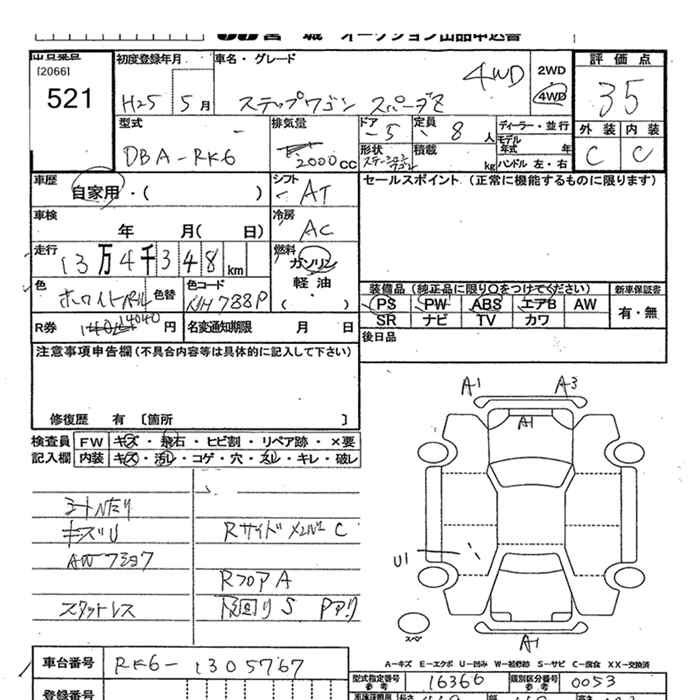 宮 城 オークション出品申込書
出品番号
[2066]
521
初度登録年月
H25 5月
車名・グレード
ステップワゴン スパーダZ 4WD
2WD
4WD
評価点
35
外装 内装
C C
型式
DBA-RK6
排気量
2000cc
ドア 5
形状
定員 8人
積載 kg
ディーラー・並行
モデル年式 年
ハンドル 左・右
車歴
自家用・( )
シフト
AT
セールスポイント (正常に機能するものに限ります)
車検
年 月( 日)
冷房
AC
走行
13万4千348km
燃料
ガソリン
軽油
( )
色
ホワイトパール 色替
色コード
NH788P
装備品(純正品に限り○をつけてください)
PS PW ABS エアB AW
SR ナビ TV カワ
新車保証書
有・無
R券
14040円
名変通知期限 月 日
後日品
注意事項申告欄(不具合内容等は具体的に記入して下さい)
修復歴 有 〔箇所 〕
検査員記入欄
FW キズ・飛石・ヒビ割・リペア跡・×要
内装 キズ・汚れ・コゲ・穴・スレ・キレ・破レ
キズU
スタットレス
Rサイド C
RフロアA
下回りS
A1 A3
A1
U1
スペア
A1
A-キズ E-エクボ U-凹み W-補修跡 S-サビ C-腐食 XX-交換済
車台番号
RK6-1305767
型式指定番号
参考
16366
類別区分番号
参考
0053
登録番号